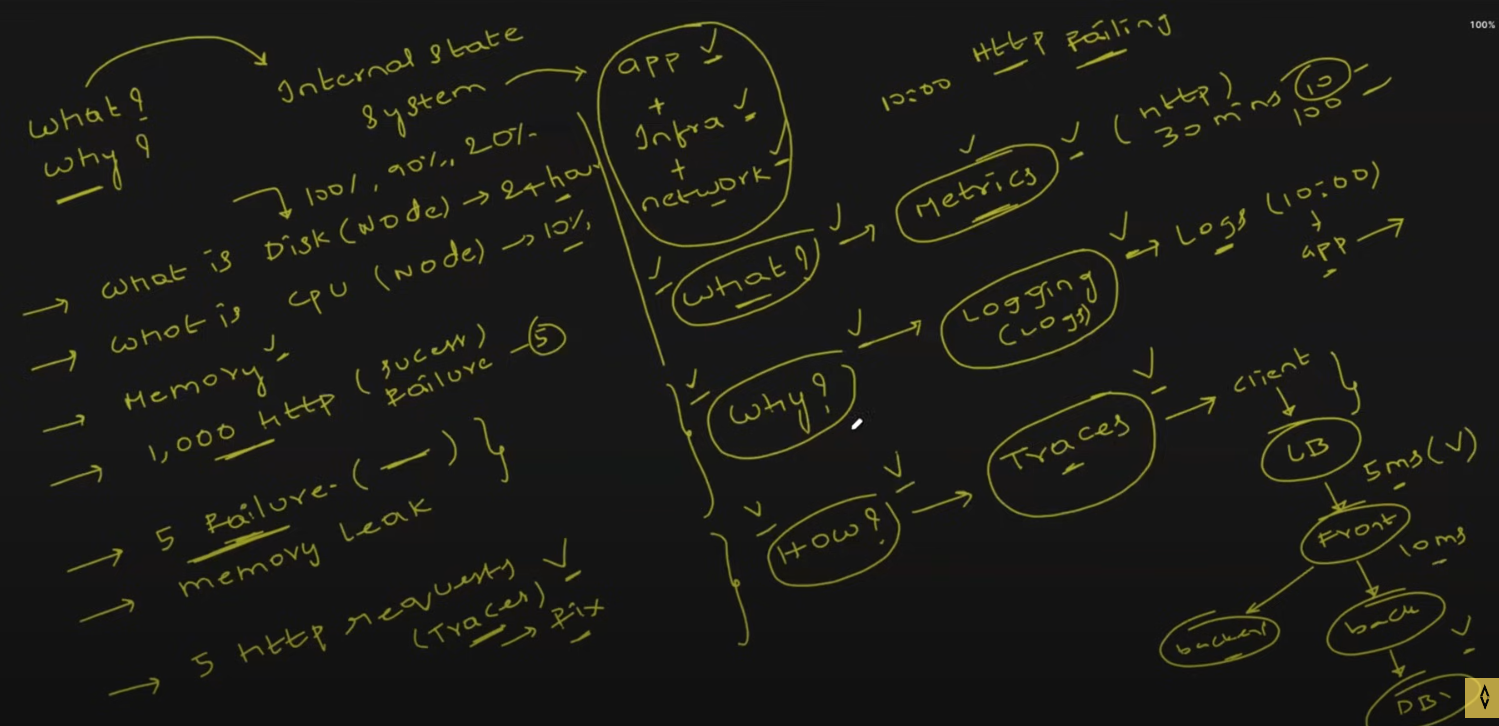 100%
What?
Why?
Internal State
System
app
+
Infra
+
network
10:00 Http Failing
100%, 90%, 20%
What is Disk (Node) → 24 hour
What is CPU (Node) → 10%
Memory
1,000 http (sucess)
Failure - 5
5 Failure - ( — ) }
memory leak
5 http requests
(Traces) → Fix
What? → Metrics (http)
30 mins 10
100
Why? → Logging → Logs (10:00)
(Logs)
app →
How? → Traces → client
LB
5ms (V)
Front
10ms
backend
back
DB